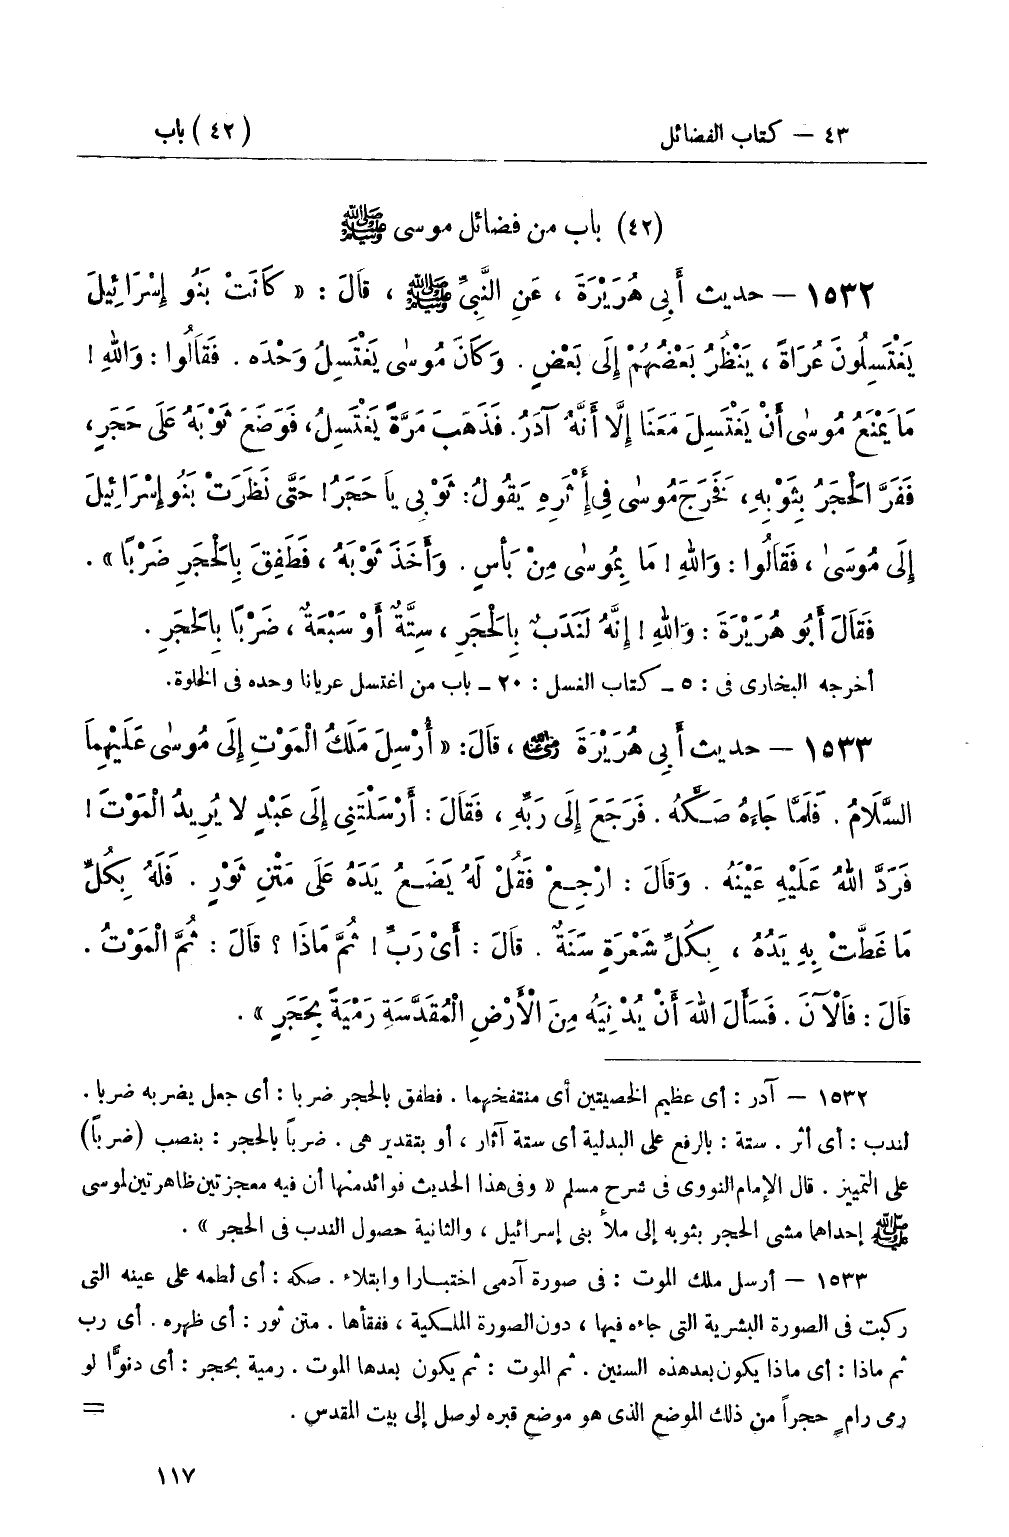 ٤٣ — كتاب الفضائل
(٤٢) باب
(٤٢) باب من فضائل موسى ﷺ
١٥٣٢ — حديث أَبِى هُرَيْرَةَ ، عَنِ النَّبِيِّ ﷺ ، قَالَ : « كَانَتْ بَنُو إِسْرَائِيلَ
يَغْتَسِلُونَ عُرَاةً ، يَنْظُرُ بَعْضُهُمْ إِلَى بَعْضٍ . وَكَانَ مُوسٰى يَغْتَسِلُ وَحْدَه . فَقَالُوا : وَاللهِ !
مَا يَمْنَعُ مُوسٰى أَنْ يَغْتَسِلَ مَعَنَا إِلَّا أَنَّهُ آدَرُ. فَذَهَبَ مَرَّةً يَغْتَسِلُ، فَوَضَعَ ثَوْبَهُ عَلَى حَجَرٍ،
فَفَرَّ الْحَجَرُ بِثَوْبِهِ، فَخَرَجَ مُوسٰى فِى إِثْرِهِ يَقُولُ: ثَوْبِى يَا حَجَرُ! حَتَّى نَظَرَتْ بَنُو إِسْرَائِيلَ
إِلَى مُوسَىٰ ، فَقَالُوا : وَاللهِ ! مَا بِمُوسٰى مِنْ بَأْسٍ . وَأَخَذَ ثَوْبَهُ ، فَطَفِقَ بِالْحَجَرِ ضَرْبًا » .
فَقَالَ أَبُو هُرَيْرَةَ : وَاللهِ ! إِنَّهُ لَنَدَبٌ بِالْحَجَرِ ، سِتَّةٌ أَوْ سَبْعَةٌ ، ضَرْبًا بِالْحَجَرِ .
أخرجه البخارى فى : ٥ ــ كتاب الغسل : ٢٠ ــ باب من اغتسل عريانا وحده فى الخلوة.
١٥٣٣ — حديث أَبِى هُرَيْرَةَ رضي الله عنه ، قَالَ: « أُرْسِلَ مَلَكُ الْمَوْتِ إِلَى مُوسٰى عَلَيْهِمَا
السَّلَامُ . فَلَمَّا جَاءهُ صَكَّهُ . فَرَجَعَ إِلَى رَبِّهِ ، فَقَالَ : أَرْسَلْتَنِى إِلَى عَبْدٍ لا يُرِيدُ الْمَوْتَ !
فَرَدَّ اللهُ عَلَيْهِ عَيْنَهُ . وَقَالَ : ارْجِعْ فَقُلْ لَهُ يَضَعُ يَدَهُ عَلَى مَتْنِ ثَوْرٍ . فَلَهُ بِكُلِّ
مَا غَطَّتْ بِهِ يَدُهُ ، بِكُلِّ شَعْرَةٍ سَنَةٌ . قَالَ : أَىْ رَبِّ ! ثُمَّ مَاذَا ؟ قَالَ : ثُمَّ الْمَوْتُ .
قَالَ : فَالْآنَ . فَسَأَلَ اللهَ أَنْ يُدْنِيَهُ مِنَ الْأَرْضِ الْمُقَدَّسَةِ رَمْيَةً بِحَجَرٍ » .
١٥٣٢ — آدر : أى عظيم الخصيتين أى منتفخهما . فطفق بالحجر ضربا : أى جعل يضربه ضربا .
لندب : أى أثر . ستة : بالرفع على البدلية أى ستة آثار ، أو بتقدير هى . ضرباً بالحجر : بنصب (ضرباً)
على التمييز . قال الإمام النووى فى شرح مسلم « وفى هذا الحديث فوائد منها أن فيه معجزتين ظاهرتين لموسى
ﷺ إحداهما مشى الحجر بثوبه إلى ملأ بنى إسرائيل ، والثانية حصول الندب فى الحجر » .
١٥٣٣ — أرسل ملك الموت : فى صورة آدمى اختبارا وابتلاء . صكه : أى لطمه على عينه التى
ركبت فى الصورة البشرية التى جاءه فيها ، دون الصورة الملكية ، ففقأها . متن ثور : أى ظهره . أى رب
ثم ماذا : أى ماذا يكون بعد هذه السنين . ثم الموت : ثم يكون بعدها الموت . رمية بحجر : أى دنوًّا لو
رمى رامٍ حجراً من ذلك الموضع الذى هو موضع قبره لوصل إلى بيت المقدس .
=
١١٧